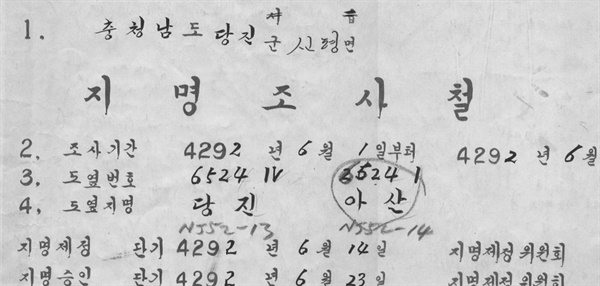 1. 충청남도 당진 시 읍
군 신평 면
지명조사철
2. 조사기간 4292 년 6 월 1 일부터 4292 년 6 월
3. 도엽번호 6524 IV 6524 I
4. 도엽지명 당진 아산
NJ52-13 NJ52-14
지명제정 단기 4292 년 6 월 14 일 지명제정위원회
지명승인 단기 4292 년 6 월 23 일 지명제정위원회